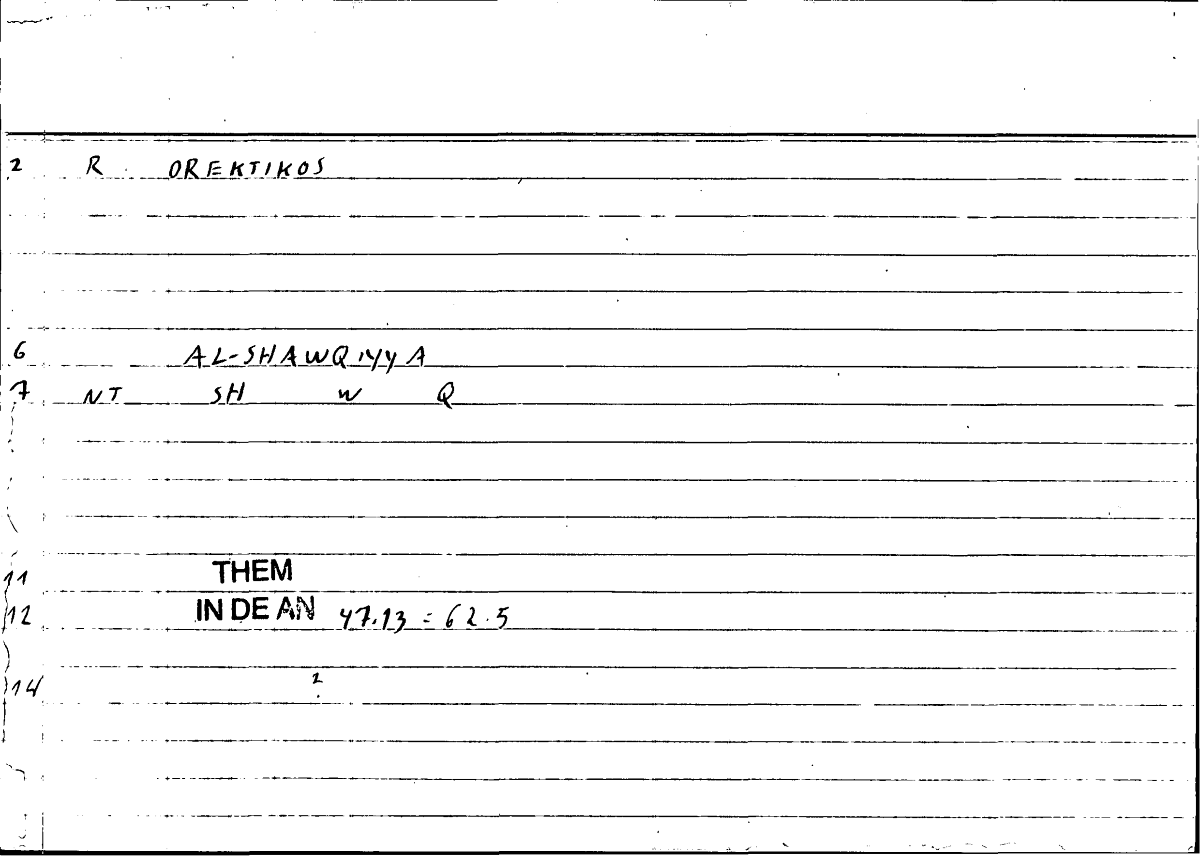 2 R OREKTIKOS
6 AL-SHAWQIYYA
7 NT SH W Q
11 THEM
12 IN DE AN 47.13 = 62.5
14 2